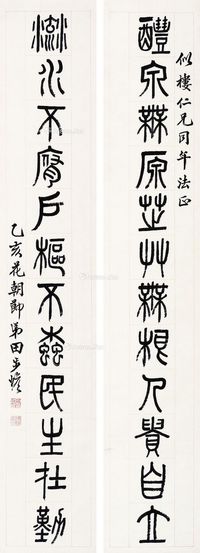 似楼仁兄同年法正
醴泉無原芝艸無根人貴自立
流水不腐戶樞不蠹民生在勤
乙亥花朝節弟田步蟾